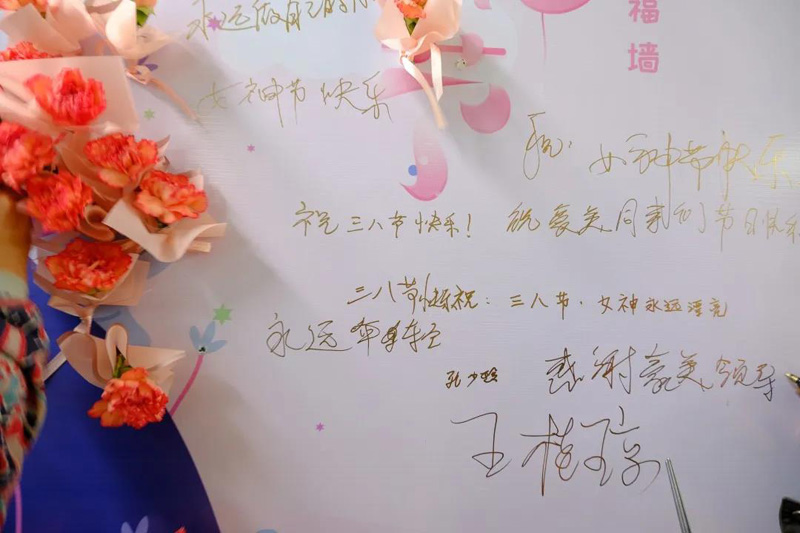 福墙
永远做自己的
女神节快乐
祝: 女神节快乐
祝三八节快乐! 祝豪美同事们节日快乐
三八节快乐祝: 三八节·女神永远漂亮
永远年轻
感谢豪美领导
王桂琼